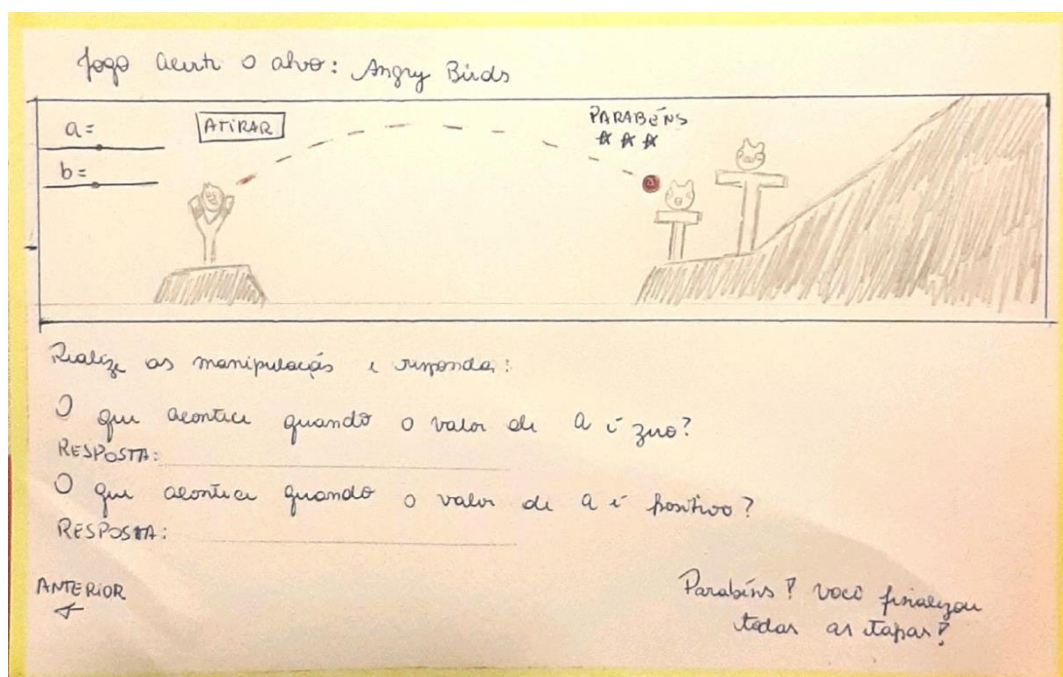 Jogo acerte o alvo: Angry Birds
a=
ATIRAR
PARABÉNS
b=
Realize as manipulações e responda:
O que acontece quando o valor de a é zero?
RESPOSTA:
O que acontece quando o valor de a é positivo?
RESPOSTA:
ANTERIOR
Parabéns! você finalizou
todas as etapas!